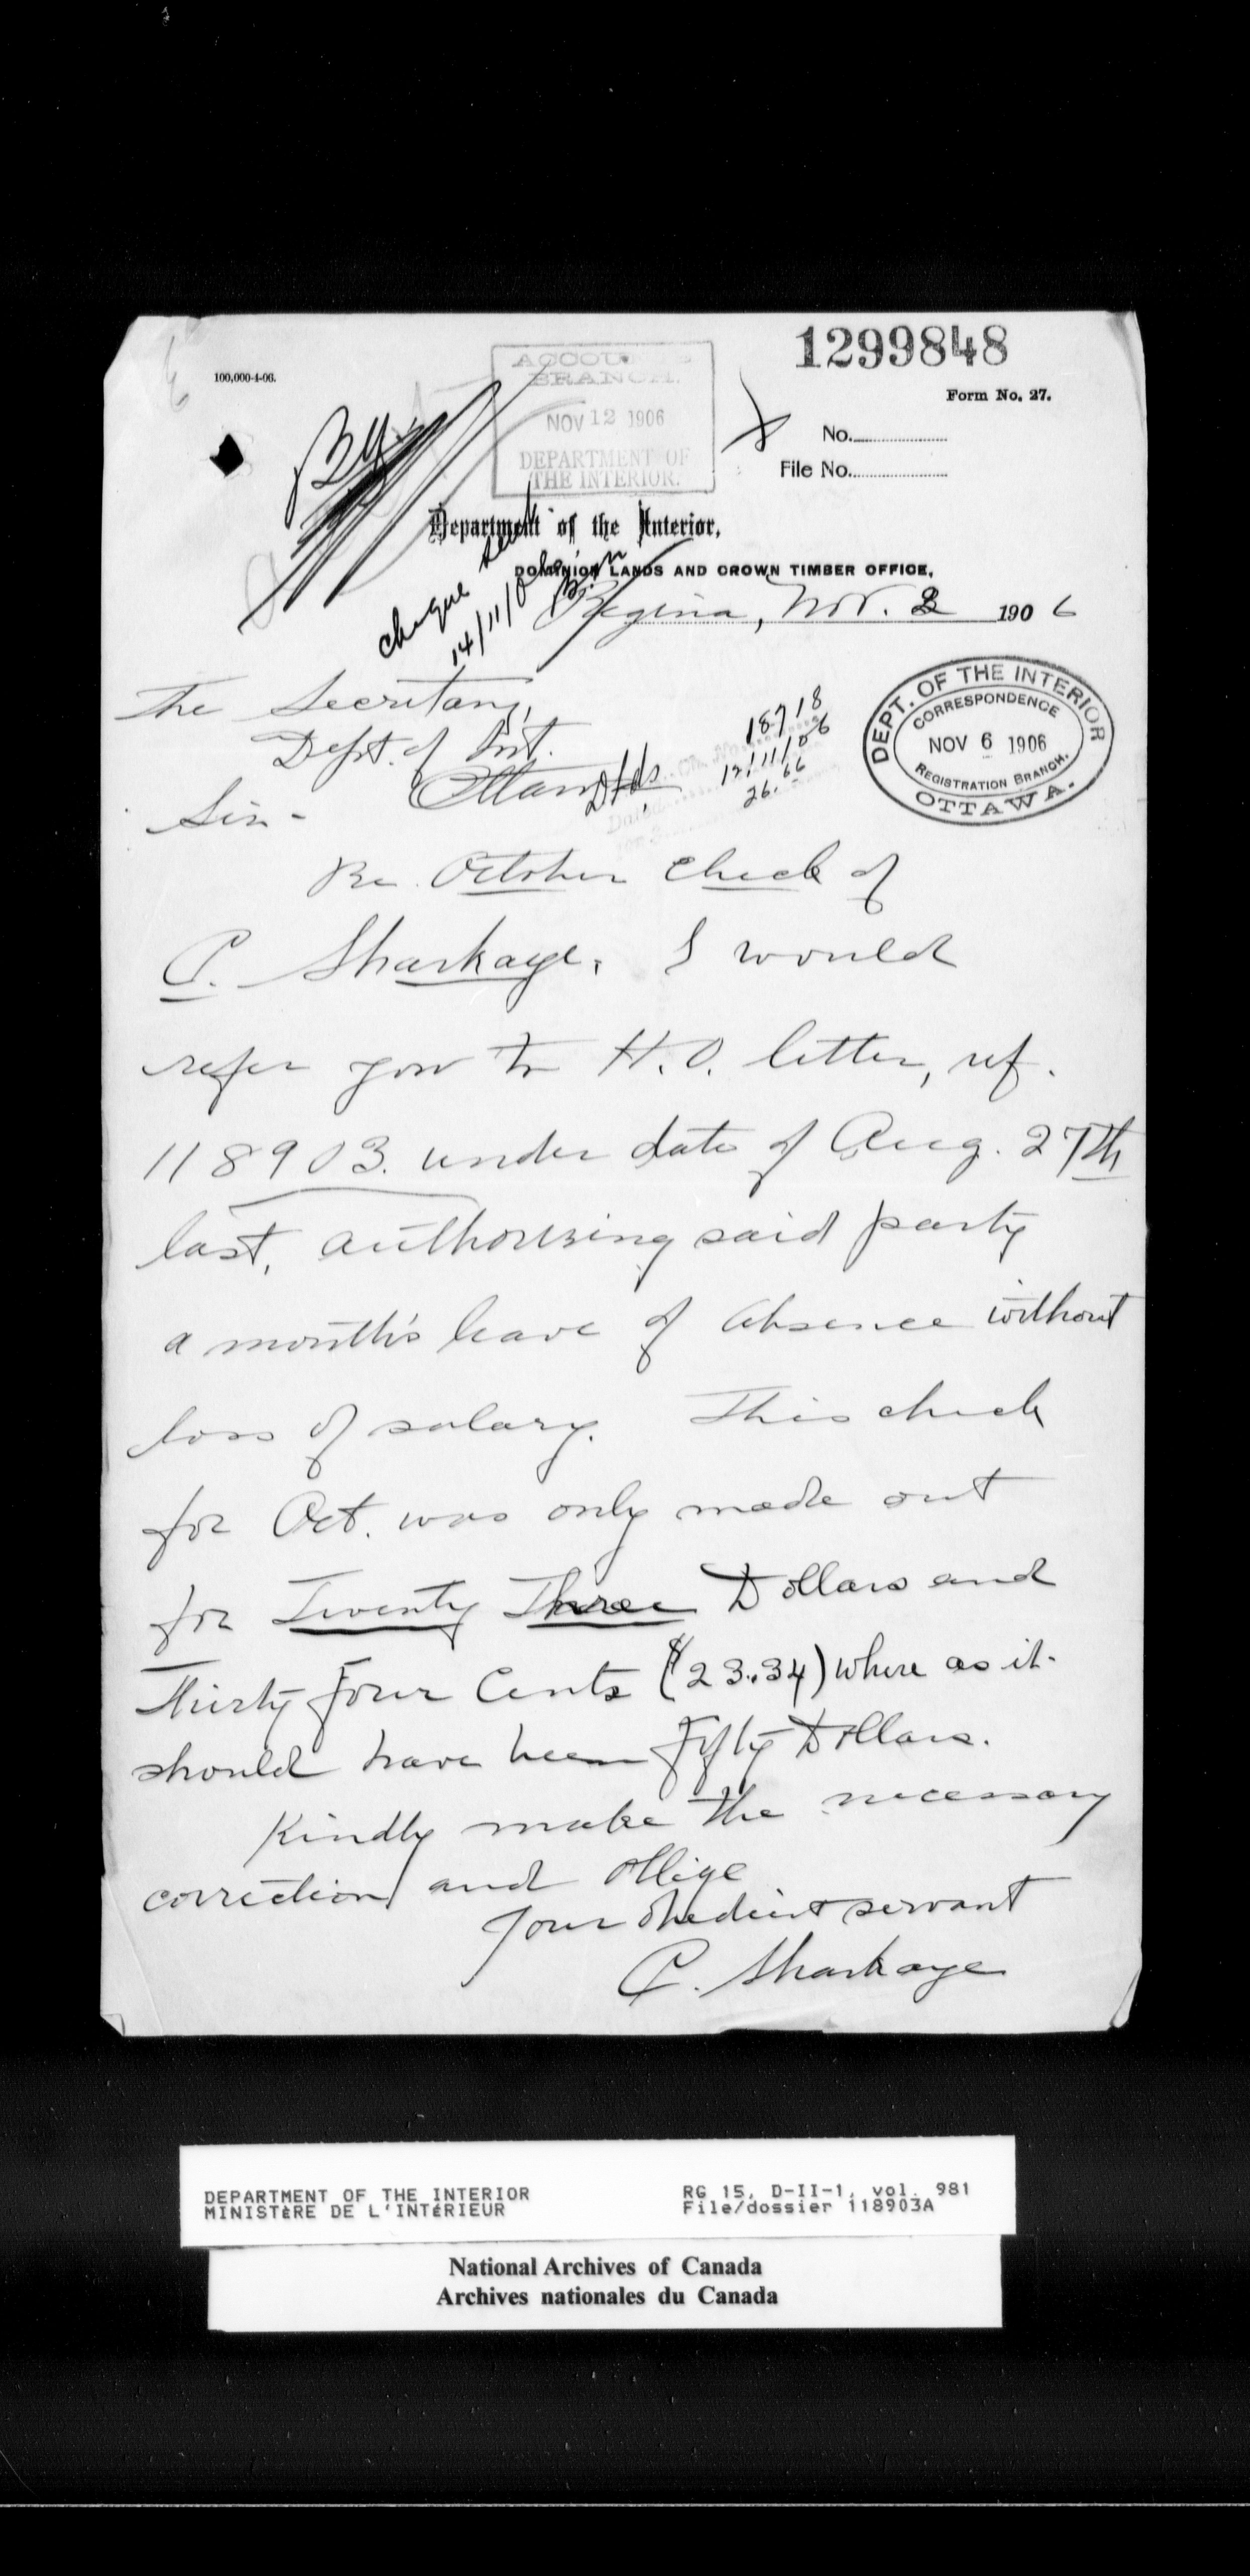 1299848
100,000-4-06.
Form No. 27.
ACCOUNTS
BRANCH.
NOV 12 1906
DEPARTMENT OF
THE INTERIOR.
No.
File No.
Department of the Interior,
DOMINION LANDS AND CROWN TIMBER OFFICE,
Regina, Nov. 2 1906
cheque
14/11/0
The Secretary,
Dept. of Int.
Ottawa
18718
12/11/06
26.66
DEPT. OF THE INTERIOR
CORRESPONDENCE
NOV 6 1906
REGISTRATION BRANCH.
OTTAWA.
Sir -
Re. October Check of
C. Sharkaye. I would
refer you to H.O. letter, ref.
118903. under date of Aug. 27th
last, authorizing said party
a month's leave of absence without
loss of salary. This check
for Oct. was only made out
for Twenty Three Dollars and
Thirty Four Cents ($23.34) where as it
should have been Fifty Dollars.
Kindly make the necessary
correction and oblige
Your obedient servant
C. Sharkaye
DEPARTMENT OF THE INTERIOR
MINISTÈRE DE L'INTÉRIEUR
RG 15, D-II-1, vol. 981
File/dossier 118903A
National Archives of Canada
Archives nationales du Canada